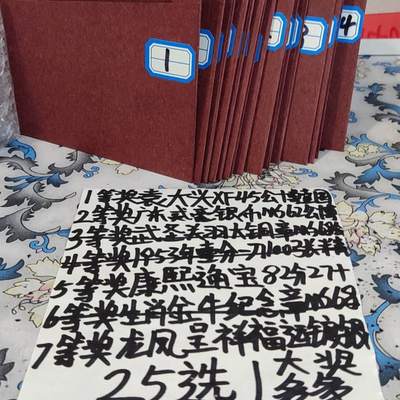 1
4
1等奖袁大头XF45公博
2等奖广东 银币MS62公博
3等奖武圣关羽大铜章MS68
4等奖1953年壹分一刀100张
5等奖康熙通宝82分27+
6等奖生肖金牛纪念章MS68
7等奖龙凤呈祥福运
25选1大奖多多